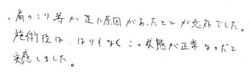 ・肩のこり等が足に原因があったことが意外でした。
施術後は、はりもなくこの状態が正常なのだと
実感しました。